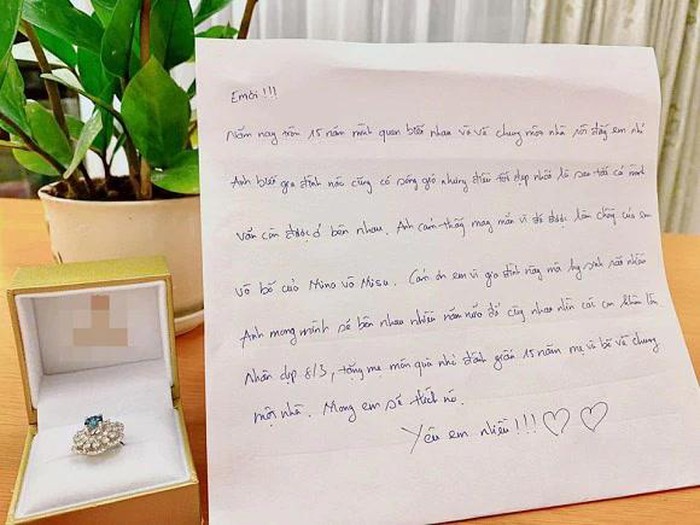 Em ơi !!!
Năm nay tròn 15 năm mình quen biết nhau và về chung một nhà rồi đấy em nhỉ
Anh biết gia đình nào cũng có sóng gió nhưng điều tốt đẹp nhất là sau tất cả mình
vẫn còn được ở bên nhau. Anh cảm thấy may mắn vì đã được làm chồng của em
và bố của Mino và Misu. Cảm ơn em vì gia đình này mà hy sinh rất nhiều
Anh mong mình sẽ bên nhau nhiều năm nữa để cùng nhau nhìn các con khôn lớn
Nhân dịp 8/3, tặng mẹ món quà nhỏ đánh dấu 15 năm mẹ và bố về chung
một nhà. Mong em sẽ thích nó.
Yêu em nhiều!!! ♡ ♡